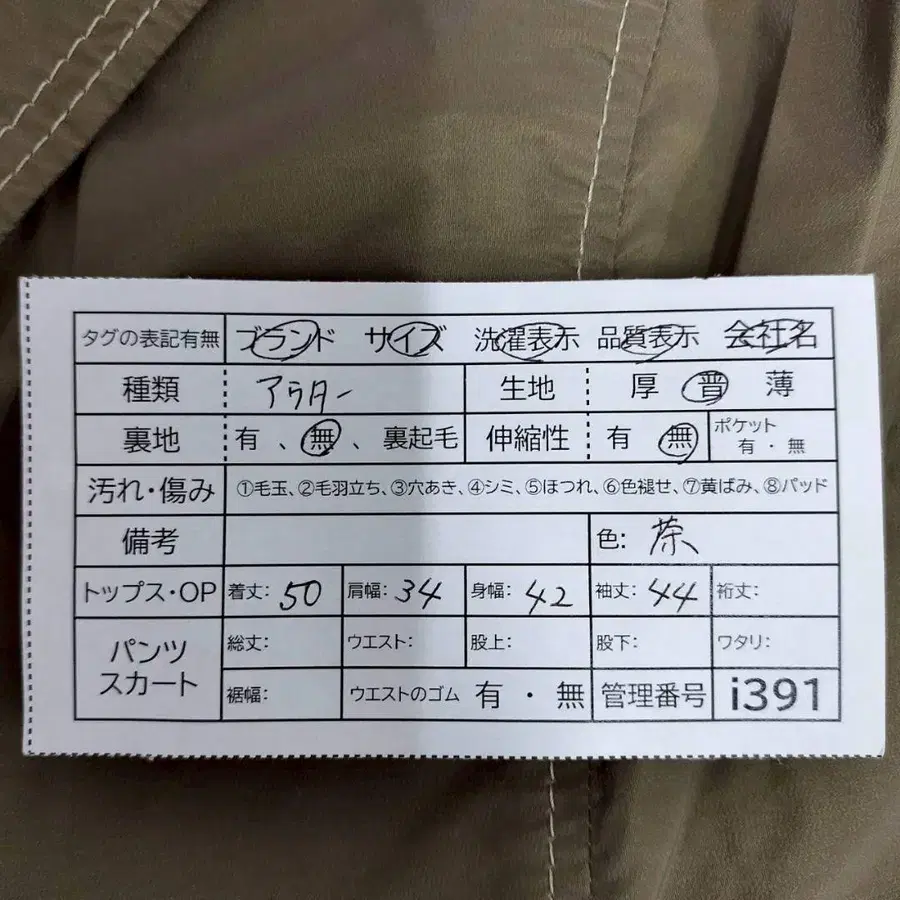 タグの表記有無 ブランド サイズ 洗濯表示 品質表示 会社名
種類 アウター 生地 厚 普 薄
裏地 有 、 無 、 裏起毛 伸縮性 有 無 ポケット 有 ・ 無
汚れ・傷み ①毛玉、②毛羽立ち、③穴あき、④シミ、⑤ほつれ、⑥色褪せ、⑦黄ばみ、⑧パッド
備考 色: 茶
トップス・OP 着丈: 50 肩幅: 34 身幅: 42 袖丈: 44 裄丈:
パンツ スカート 総丈: ウエスト: 股上: 股下: ワタリ:
裾幅: ウエストのゴム 有 ・ 無 管理番号 i391